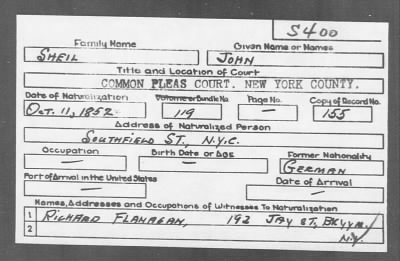 S400
Family Name Given Name or Names
SHEIL JOHN
Title and Location of Court
COMMON PLEAS COURT. NEW YORK COUNTY.
Date of Naturalization Volume or Bundle No. Page No. Copy of Record No.
OCT. 11, 1852 119 — 155
Address of Naturalized Person
SOUTHFIELD ST., N.Y.C.
Occupation Birth Date or Age Former Nationality
— — GERMAN
Port of Arrival in the United States Date of Arrival
— —
Names, Addresses and Occupations of Witnesses To Naturalization
1 RICHARD FLANAGAN, 192 JAY ST, BKLYN.
2 N.Y.